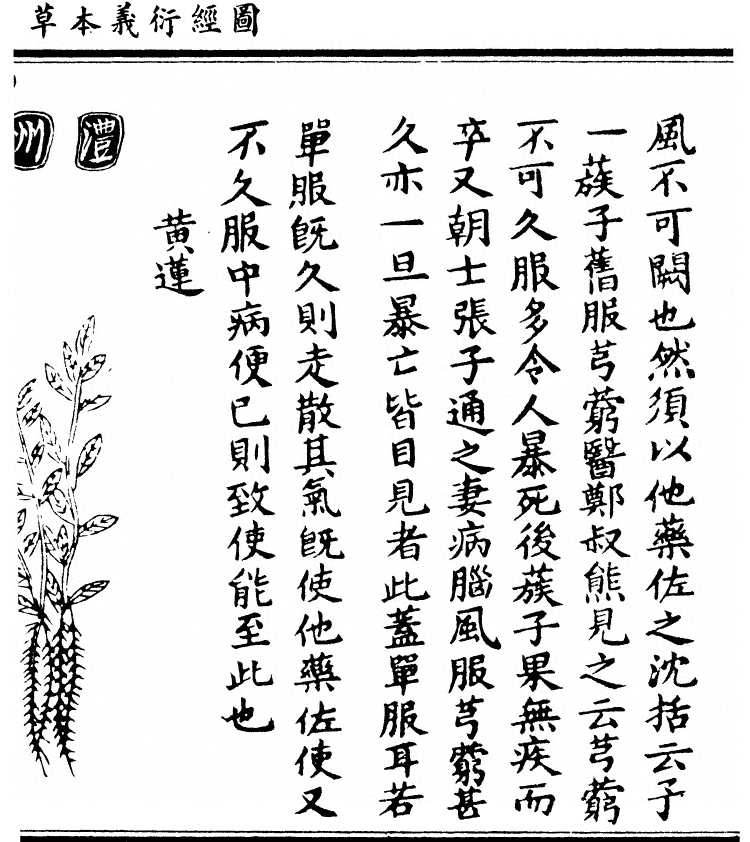 圖經衍義本草
風不可闕也然須以他藥佐之沈括云予
一蔟子舊服芎藭醫鄭叔熊見之云芎藭
不可久服多令人暴死後蔟子果無疾而
卒又朝士張子通之妻病腦風服芎藭甚
久亦一旦暴亡皆目見者此蓋單服耳若
單服旣久則走散其氣旣使他藥佐使又
不久服中病便已則致使能至此也
黃蓮
澧州